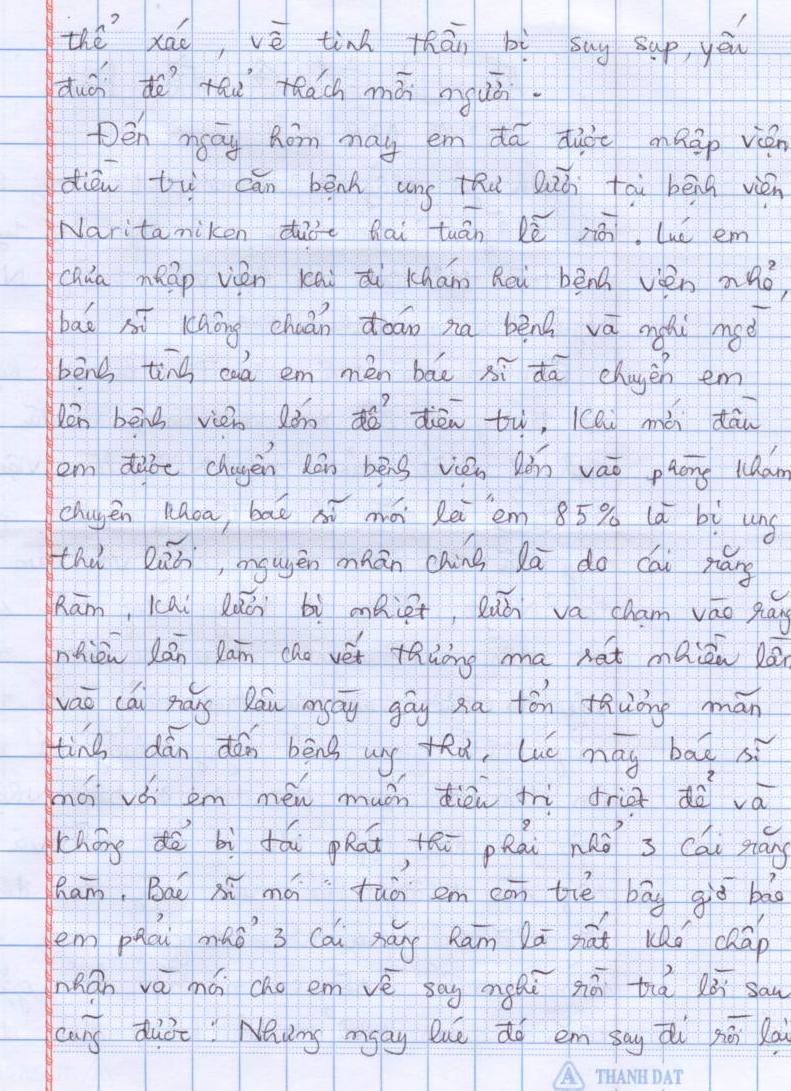 thể xác, về tinh thần bị suy sụp, yếu
đuối để thử thách mỗi người.
Đến ngày hôm nay em đã được nhập viện
điều trị căn bệnh ung thư lưỡi tại bệnh viện
Naritaniken được hai tuần lễ rồi. Lúc em
chưa nhập viện khi đi khám hai bệnh viện nhỏ,
bác sĩ không chuẩn đoán ra bệnh và nghi ngờ
bệnh tình của em nên bác sĩ đã chuyển em
lên bệnh viện lớn để điều trị. Khi mới đầu
em được chuyển lên bệnh viện lớn vào phòng khám
chuyên khoa, bác sĩ nói là "em 85% là bị ung
thư lưỡi, nguyên nhân chính là do cái răng
hàm. Khi lưỡi bị nhiệt, lưỡi va chạm vào răng
nhiều lần làm cho vết thương ma sát nhiều lần
vào cái răng lâu ngày gây ra tổn thương mãn
tính dẫn đến bệnh ung thư. Lúc này bác sĩ
nói với em nếu muốn điều trị triệt để và
không để bị tái phát thì phải nhổ 3 cái răng
hàm. Bác sĩ nói "tuổi em còn trẻ bây giờ bảo
em phải nhổ 3 cái răng hàm là rất khó chấp
nhận và nói cho em về suy nghĩ rồi trả lời sau
cũng được". Nhưng ngay lúc đó em say đi rồi lại
THANH DAT